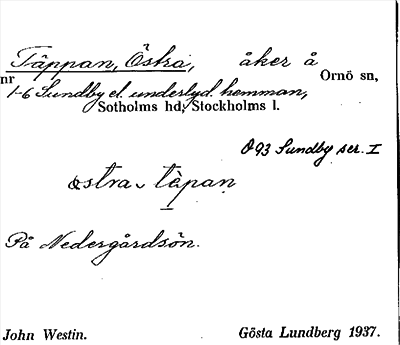 Täppan, Östra, åker å Ornö sn,
nr 1-6 Sundby el. underlyd. hemman,
Sotholms hd, Stockholms l.
Ö93 Sundby ser. I
östra täpan
I
På Nedergårdsön.
John Westin. Gösta Lundberg 1937.